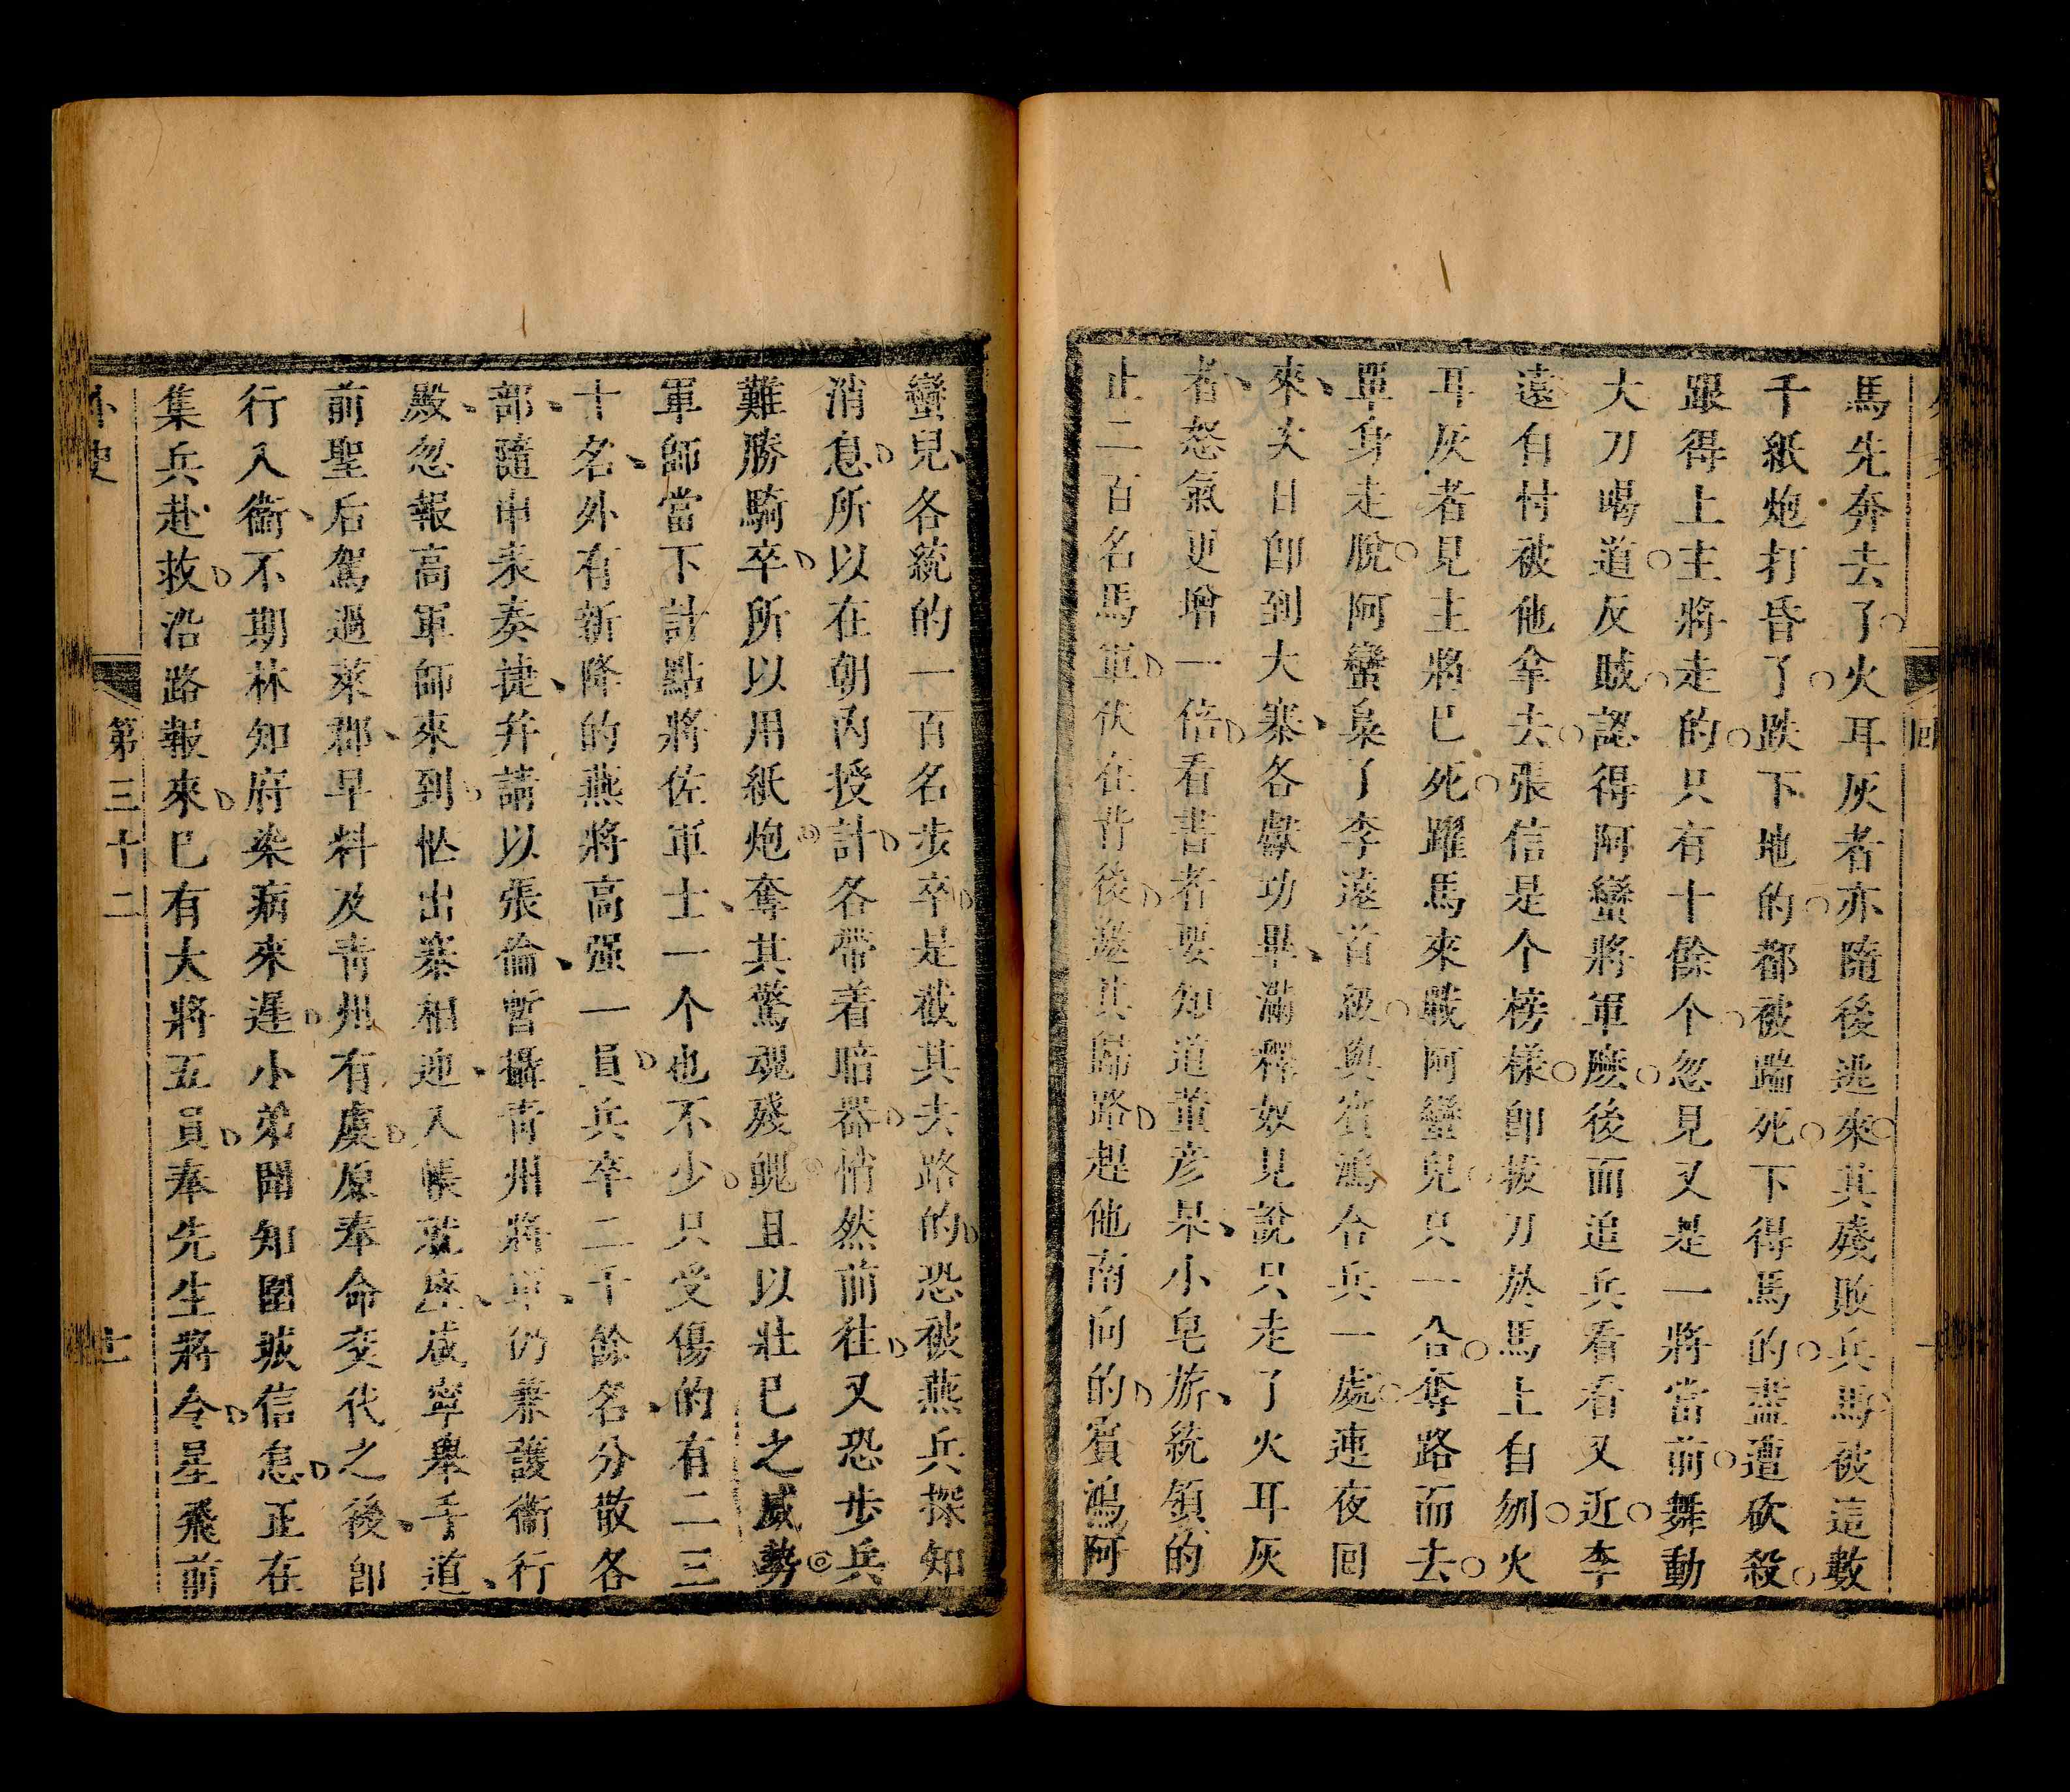 馬先奔去了火耳灰者亦隨後逃來其殘敗兵馬被這數
千紙炮打昏了跌下地的都被踹死下得馬的盡遭砍殺
跟得上主將走的只有十餘个忽見又是一將當前舞動
大刀喝道反賊認得阿蠻將軍麽後而追兵看看又近李
遠自忖被他拿去張信是个榜樣卽拔刀於馬上自刎火
耳灰者見主將已死躍馬來戰阿蠻兒只一合奪路而去
單身走脫阿蠻梟了李遠首級與賓鴻合兵一處連夜囘
來次日卽到大寨各獻功畢滿釋奴見說只走了火耳灰
者怒氣更增一倍看書者要知道董彥杲小皂旂統領的
止二百名馬軍伏在背後邀其歸路趕他南向的賓鴻阿
蠻兒各統的一百名步卒是截其去路的恐被燕兵探知
消息所以在朝內授計各帶着暗器悄然前往又恐步兵
難勝騎卒所以用紙炮奪其驚魂殘魄且以壯已之威勢
軍師當下計點將佐軍士一个也不少只受傷的有二三
十名外有新降的燕將高强一員兵卒二千餘名分散各
部隨申表奏捷并請以張倫暫攝青州將軍仍兼護衞行
殿忽報高軍師來到忙出寨相迎入帳就座咸寧舉手道
前聖后駕過萊郡早料及青州有虞原奉命交代之後卽
行入衞不期林知府染病來遲小弟聞知圍城信息正在
集兵赴救沿路報來已有大將五員奉先生將令星飛前
外史
第三十二
十一